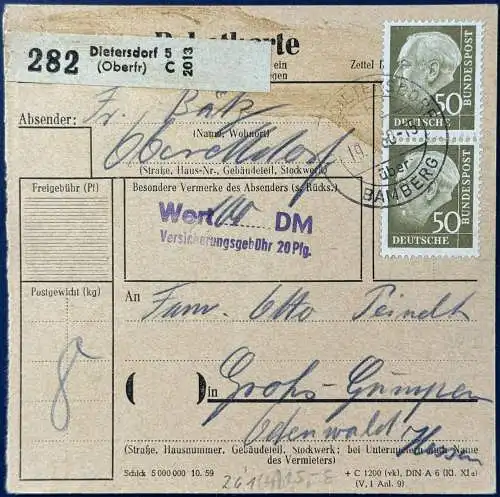 Paketkarte
282 Dietersdorf 5 (Oberfr) C 2013
Zettel f
Absender: Fr. Bätz
(Name, Wohnort)
(Straße, Haus-Nr., Gebäudeteil, Stockwerk)
50 DEUTSCHE BUNDESPOST
50 DEUTSCHE BUNDESPOST
über BAMBERG
Freigebühr (Pf)
Besondere Vermerke des Absenders (s. Rücks.)
Wert 100 DM
Versicherungsgebühr 20 Pfg.
Postgewicht (kg)
8
An Fam. Otto
in Groß-Gumpen
Odenwald
Hessen
(Straße, Hausnummer, Gebäudeteil, Stockwerk; bei Untermietern auch Name
des Vermieters)
Schick 5 000 000 10. 59
+ C 1200 (vkl), DIN-A 6 (Kl. XI a)
(V, 1 Anl. 9)